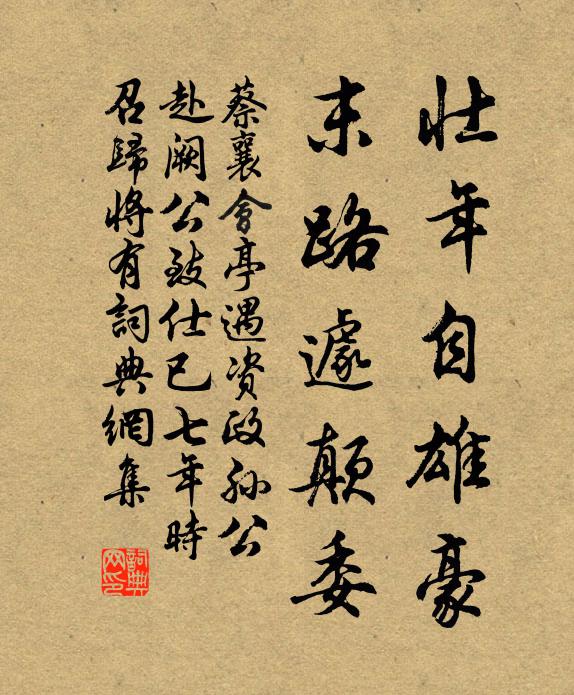 壮年自雄豪
末路遽颠委
蔡襄會亭遇资政孙公
赴阙公致仕已七年時
召歸将有詞典網集
詞典网印